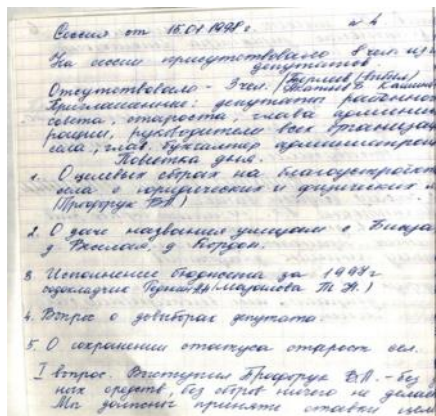 Сессия от 15.01 1998 г. № 1
На сессии присутствовало 8 чел. из
депутатов.
Отсутствовало - 3 чел.
Приглашенные: депутаты районного
совета, староста, глава админис
рации, руководители всех организац
села, глав. бухгалтер администрац
Повестка дня.
1. О целевых сборах на благоустройст
села с юридических и физических л
(Профорук В.П.)
2. О даче названия улицам с.
д. д. Кордон.
3. Исполнение бюджета за 1997 г
содокладчик (Маралова Т.Н.)
4. Вопрос о довыборах депутата.
5. О сохранении статуса старост сел.
I вопрос. Выступил Профорук В.П. - без
ных средств, без сборов ничего не делае
Мы должны принять ставки